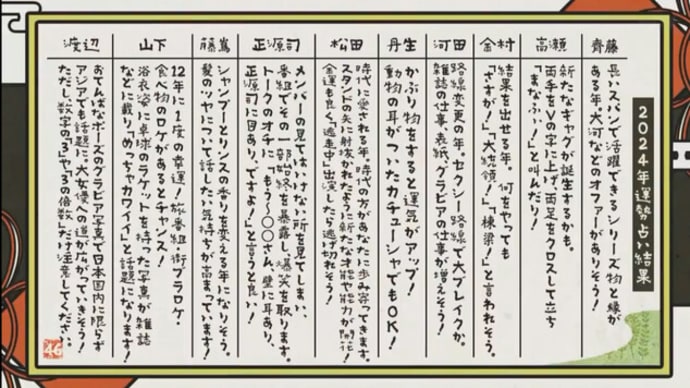 2024年運勢占い結果
齊藤
長いスパンで活躍できるシリーズ物と縁が
ある年。大河などのオファーがありそう！
高瀬
新たなギャグが誕生するかも。
両手をVの字に上げ、両足をクロスして立ち
「まなふぃ！」と叫んだり！
金村
結果を出せる年。何をやっても
「さすが！」「大統領！」「棟梁！」と言われそう。
河田
路線変更の年。セクシー路線で大ブレイクか。
雑誌の仕事、表紙、グラビアの仕事が増えそう！
丹生
かぶり物をすると運気がアップ！
動物の耳がついたカチューシャでもOK！
松田
時代に愛される年。時代の方があなたに歩み寄ってきます。
スタンドの矢に射抜かれたように新たな才能や能力が開花！
金運も良く「逃走中」出演したら逃げ切れそう！
正源司
メンバーの見てはいけない所を見てしまい、
番組でその一部始終を暴露し、爆笑を取ります。
トークのオチに、もう！〇〇さん、壁に耳あり、
正源司に目あり、ですよ！」と言うと良い！
藤嶌
シャンプーとリンスの香りを変える年になりそう。
髪のツヤについて話したい気持ちが高まっています！
山下
12年に1度の幸運！旅番組・街ブラロケ・
食べ物のロケがあるとチャンス！
浴衣姿に卓球のラケットを持った写真が雑誌
などに載り「めっちゃカワイイ」と話題になります！
渡辺
おてんばなポーズのグラビア写真で日本国内に限らず
アジアでも話題に。大女優への道が広がっていきそう！
ただし数字の「3」や「3の倍数」だけ注意してください